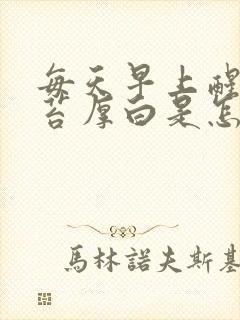 每天早上醒
苔厚白是怎
馬林諾夫斯基